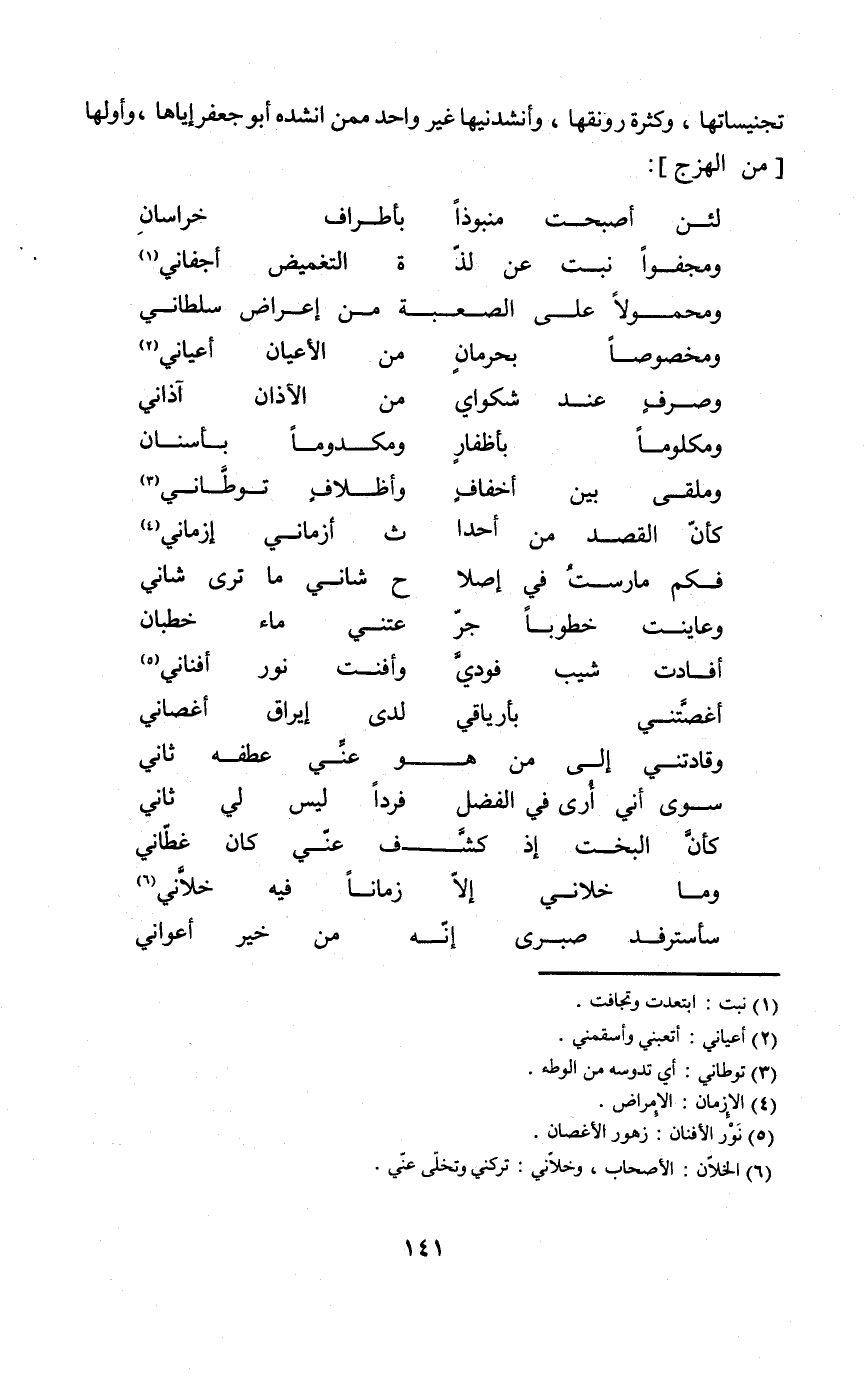 تجنيساتها ، وكثرة رونقها ، وأنشدنيها غير واحد ممن انشده أبو جعفر إياها ، وأولها
[ من الهزج ] :
لئن أصبحت منبوذاً بأطراف خراسانِ
ومجفواً نبت عن لذّ ة التغميض أجفاني(١)
ومحمولاً على الصعبة من إعراض سلطاني
ومخصوصاً بحرمانٍ من الأعيان أعياني(٢)
وصرفٍ عند شكواي من الآذان آذاني
ومكلوماً بأظفارٍ ومكدوماً بأسنان
وملقى بين أخفافٍ وأظلافٍ توطَّاني(٣)
كأنّ القصد من أحدا ث أزماني إزماني(٤)
فكم مارستُ في إصلا ح شاني ما ترى شاني
وعاينت خطوباً جرّ عتني ماء خطبان
أفادت شيب فوديَّ وأفنت نور أفناني(٥)
أغصَّتني بأرياقي لدى إيراق أغصاني
وقادتني إلى من هو عنِّي عطفه ثاني
سوى أني أُرى في الفضل فرداً ليس لي ثاني
كأنَّ البخت إذ كشَّف عنّي كان غطّاني
وما خلاني إلاّ زماناً فيه خلاَّني(٦)
سأسترفد صبرى إنّه من خير أعواني
(١) نبت : ابتعدت وتجافت .
(٢) أعياني : أتعبني وأسقمني .
(٣) توطاني : أي تدوسه من الوطء .
(٤) الإزمان : الإمراض .
(٥) نَوْر الأفنان : زهور الأغصان .
(٦) الخلاّن : الأصحاب ، وخلاّني : تركني وتخلّى عنّي .
١٤١